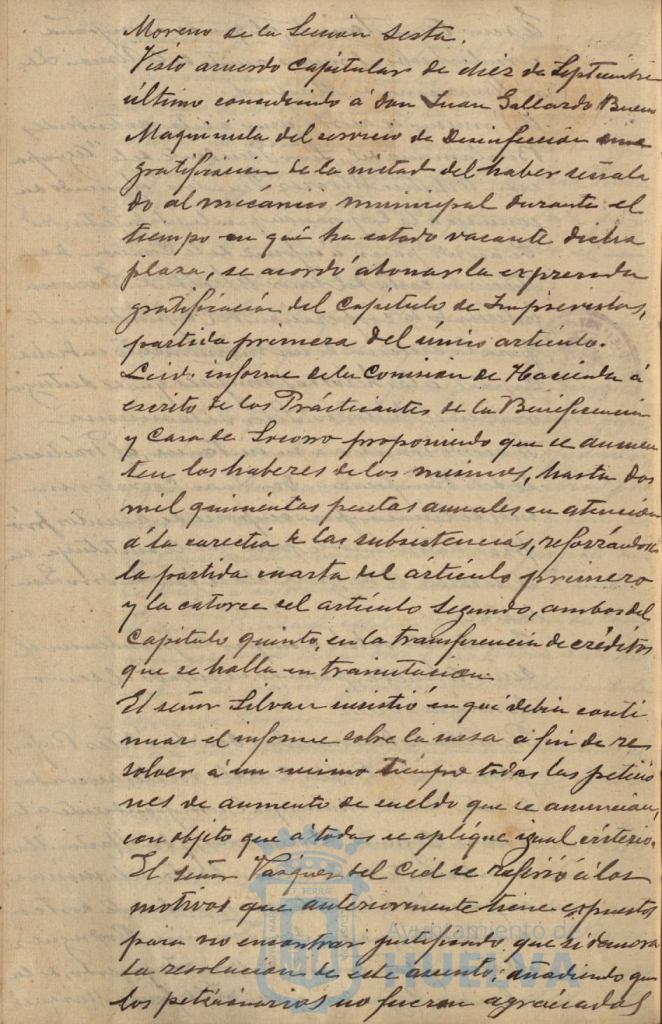 Moreno de la Sección Sexta.
Visto acuerdo capitular de diez de Septiembre
último concediendo á don Juan Gallardo Bueno
Maquinista del servicio de Desinfección una
gratificacion de la mitad del haber señala
do al mecánico municipal durante el
tiempo en qué ha estado vacante dicha
plaza, se acordó abonar la expresada
gratificación del Capítulo de Imprevistos,
partida primera del único artículo.
Leido informe de la Comisión de Hacienda á
escrito de los Prácticantes de la Beneficencia
y Casa de Socorro proponiendo que se aumen
ten los haberes de los mismos, hasta dos
mil quinientas pesetas anuales en atencion
á la carestia de las subsistencias, reforzándose
la partida cuarta del artículo primero
y la catorce del artículo segundo, ambos del
capitulo quinto, en la transferencia de créditos
que se halla en tramitacion.
El señor Silvan insistió en qué debia conti
nuar el informe sobre la mesa a fin de re
solver á un mismo tiempo todas las peticio
nes de aumento de sueldo que se anuncian,
con objeto que á todas se aplique igual criterio.
El señor Vazquez del Cid se refirió á los
motivos que anteriormente tiene expuestos
para no encontrar justificado que se demora
la resolución de este asunto, añadiendo que
los peticionarios no fueron agraciados
Ayuntamiento de
HUELVA